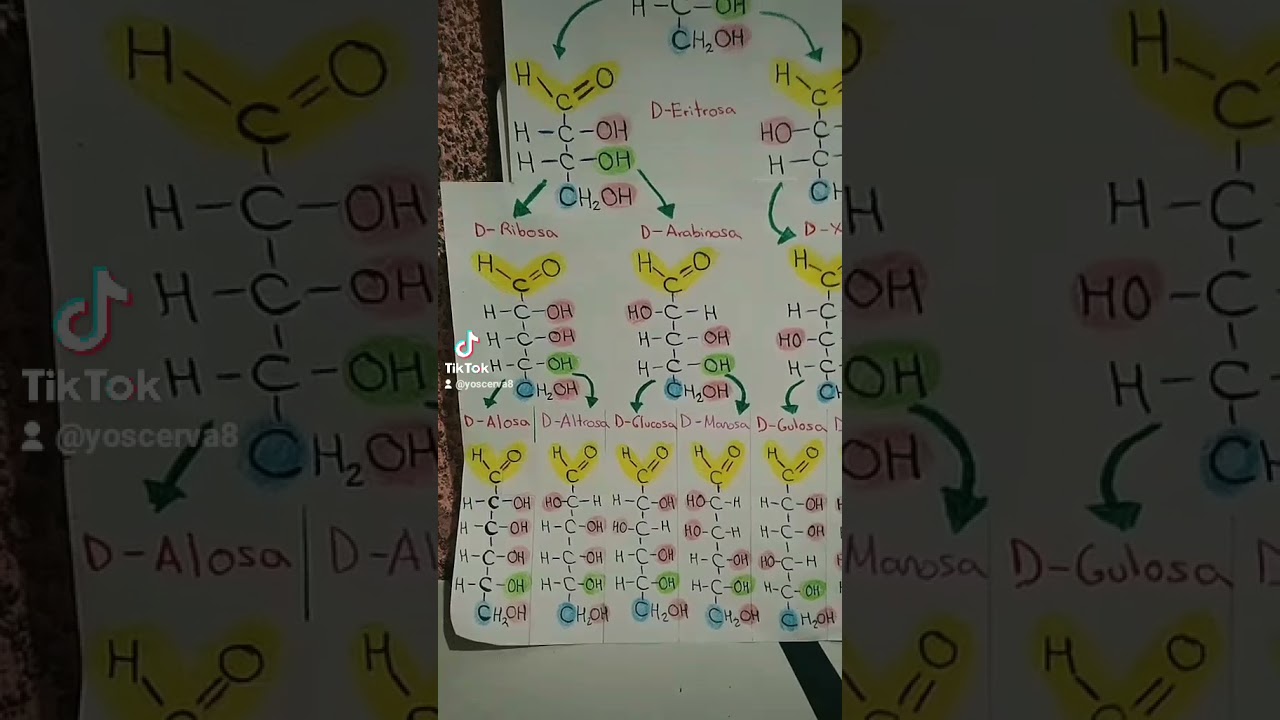 H-C-OH
CH₂OH
H O H
C C
D-Eritrosa
H-C-OH HO-C
H-C-OH H-C
CH₂OH C
D-Ribosa D-Arabinosa D-X
H C=O H C=O H C
H-C-OH HO-C-H H-C
H-C-OH H-C-OH HO-C
H-C-OH H-C-OH H-C
CH₂OH CH₂OH C
D-Alosa D-Altrosa D-Glucosa D-Manosa D-Gulosa
H C=O H C=O H C=O H C=O H C=O
H-C-OH HO-C-H H-C-OH HO-C-H H-C-OH
H-C-OH H-C-OH HO-C-H HO-C-H H-C-OH
H-C-OH H-C-OH H-C-OH H-C-OH HO-C-H
H-C-OH H-C-OH H-C-OH H-C-OH H-C-OH
CH₂OH CH₂OH CH₂OH CH₂OH CH₂OH
TikTok
@yoscerva8
H C=O
H-C-OH
H-C-OH
H-C-OH
CH₂OH
D-Alosa D-Al
H O H
TikTok
@yoscerva8
C
H H-C
OH HO-C
OH H-C
OH C
Manosa D-Gulosa D
O H O